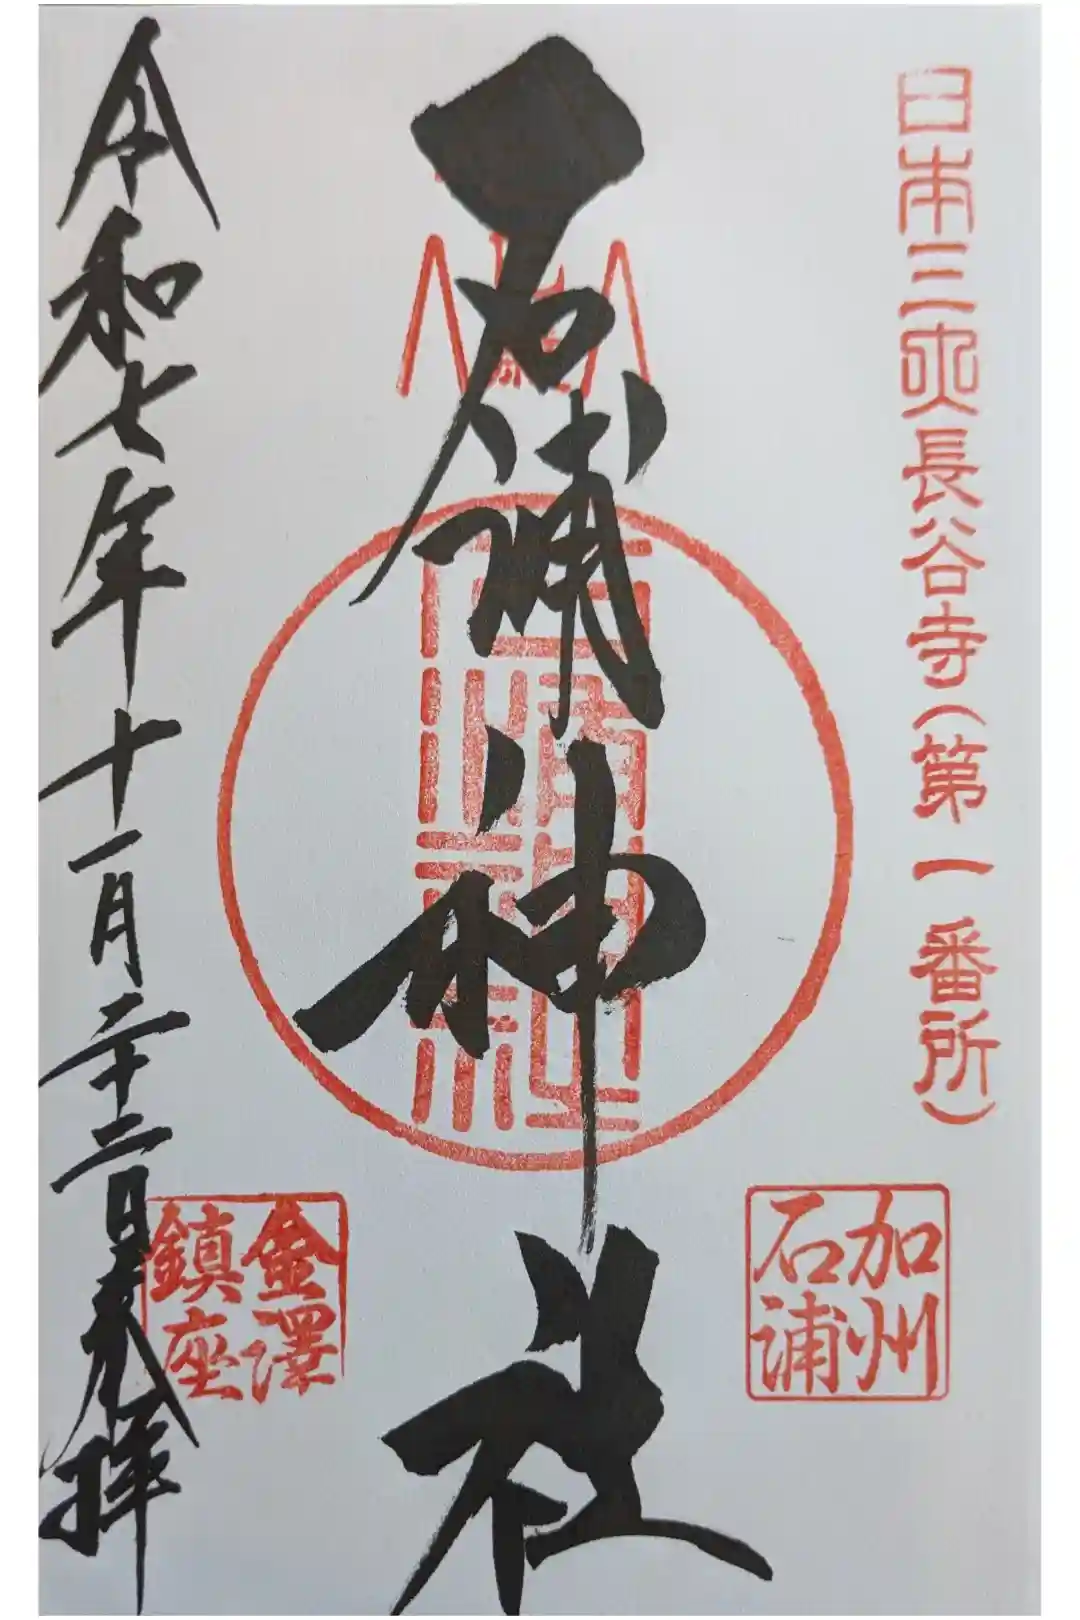 日本三所長谷寺(第一番所)
加州
石浦
石浦神社
石浦神社
金澤
鎮座
令和七年十一月二十二日奉拝